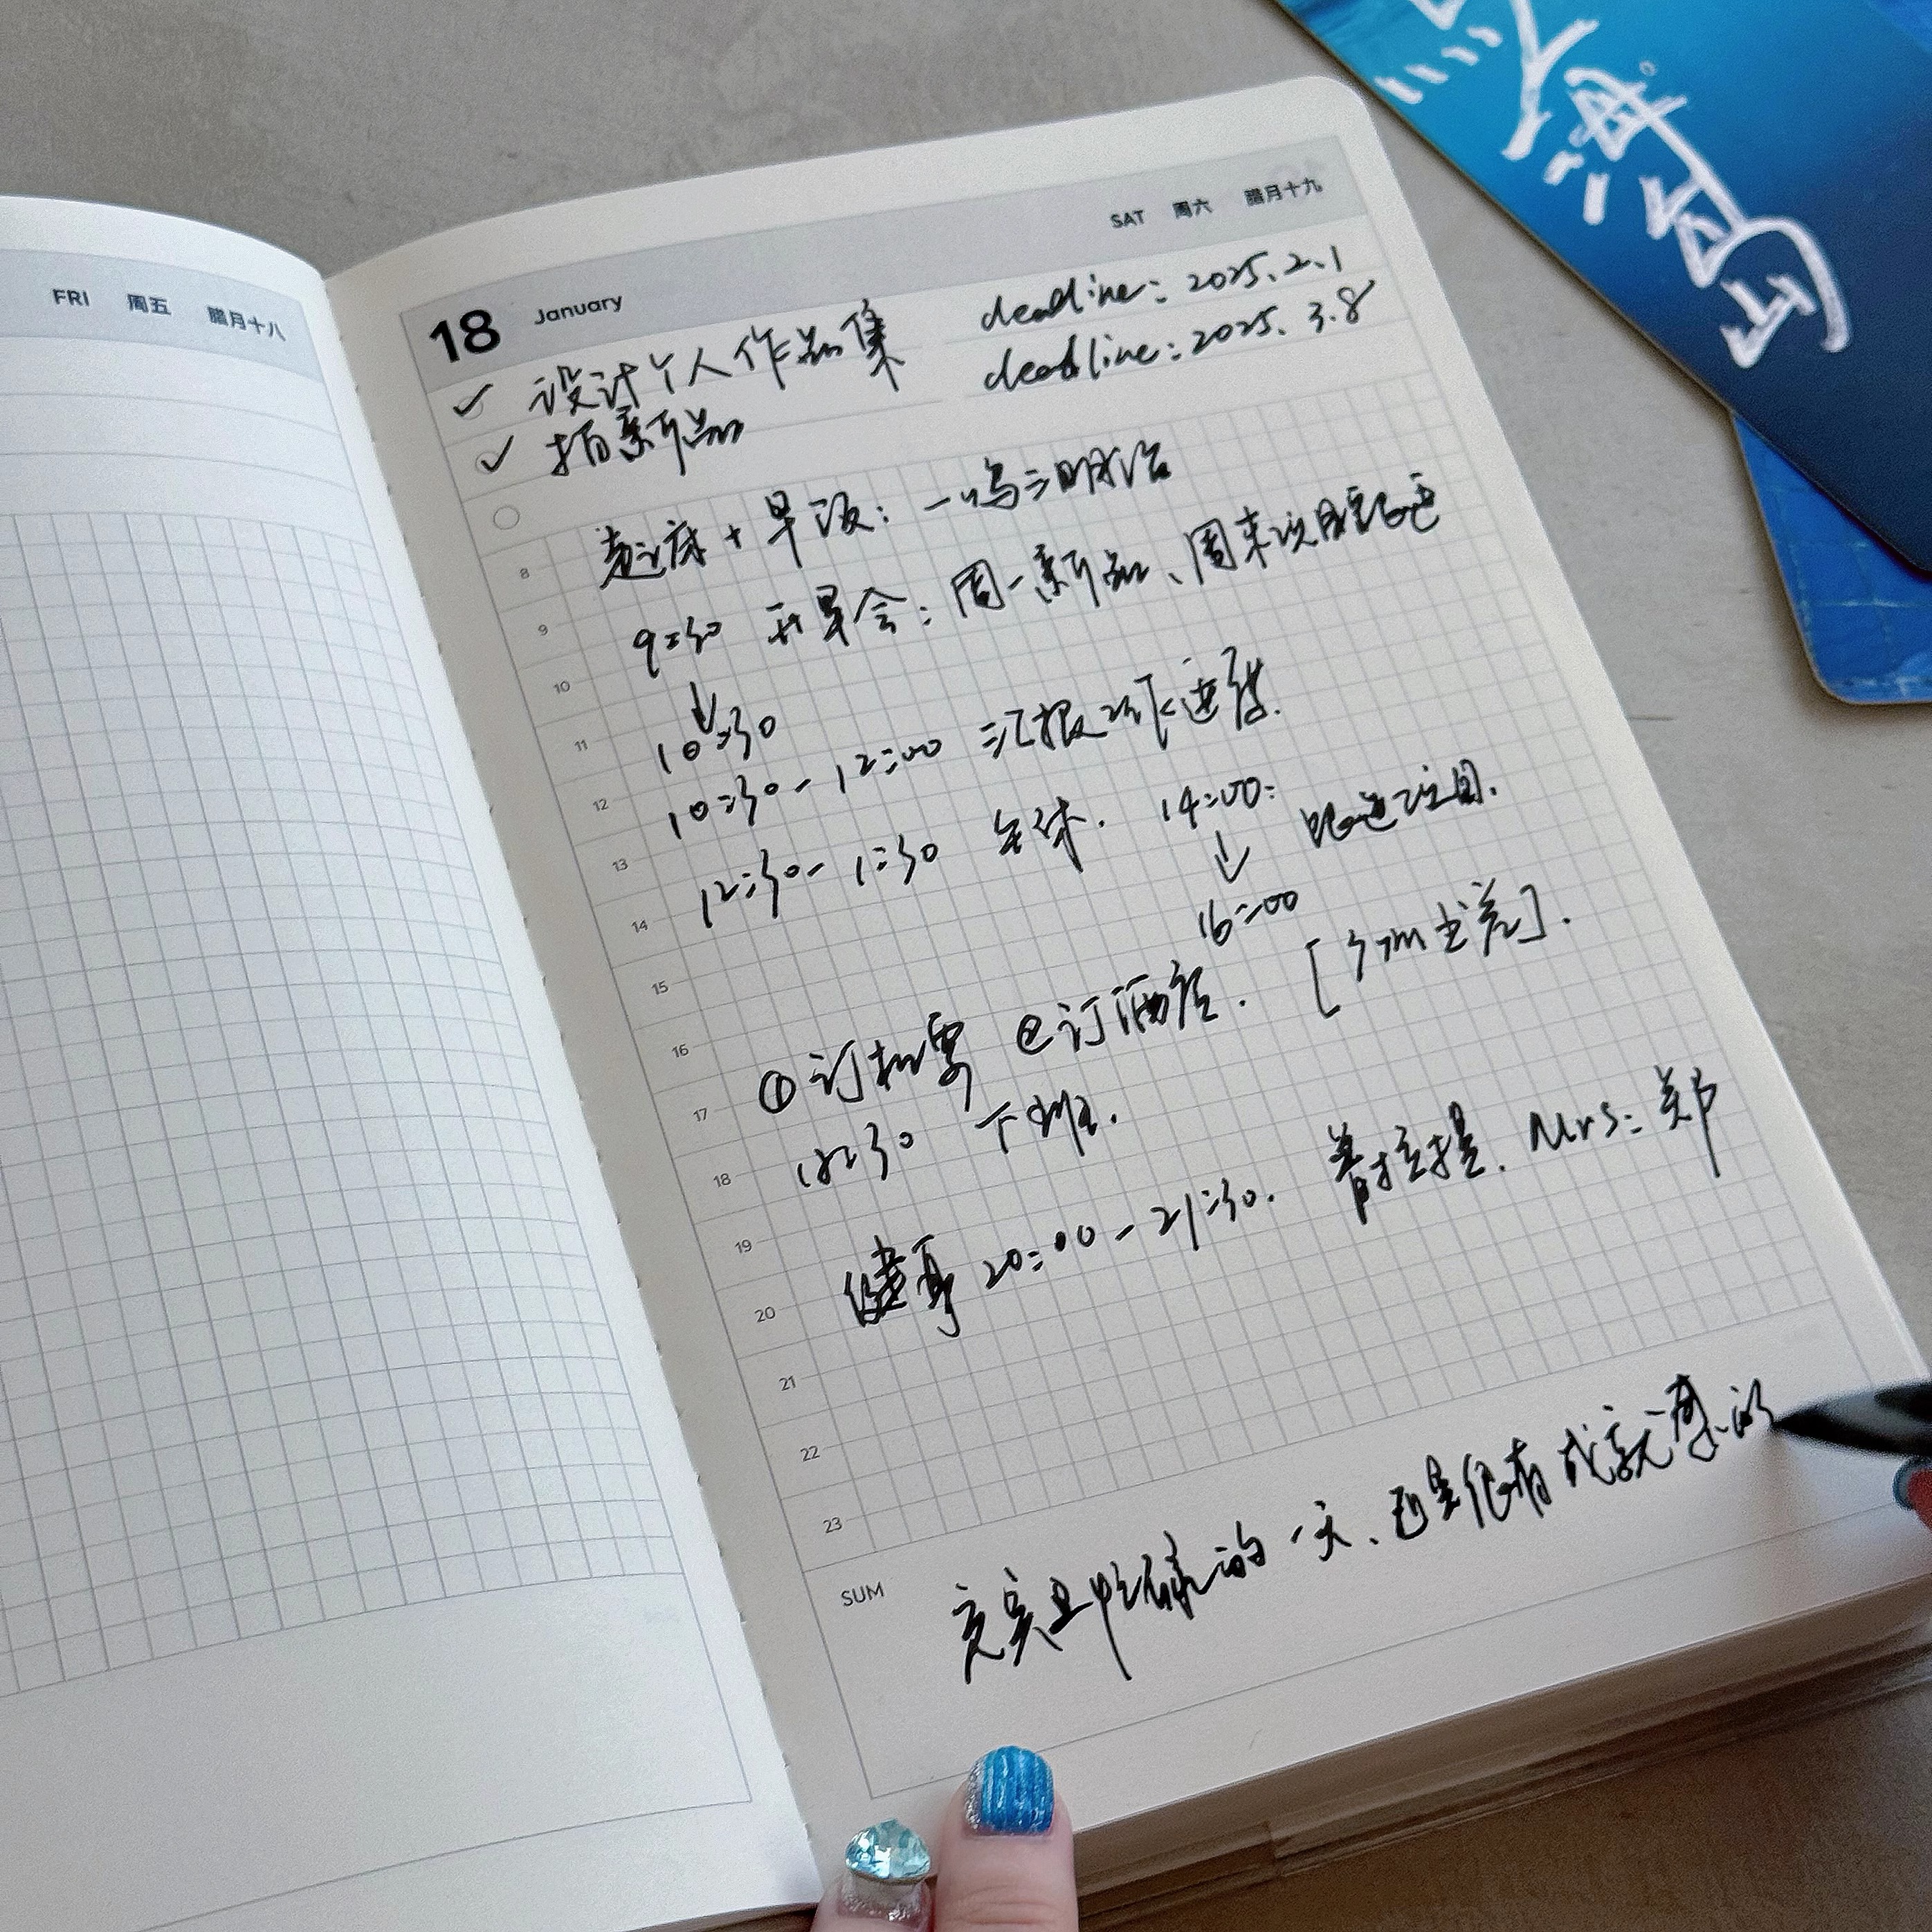 FRI 周五 腊月十八
18 January SAT 周六 腊月十九
✓ 设计个人作品集 deadline: 2025.2.1
✓ 拍新品 deadline: 2025.3.8
8 起床 + 早饭: 一鸣三明治
9 9:30 开早会: 周一新品、周末说明跟进
10 ↓
11 10:30
12 10:30-12:00 汇报线下进度.
13 12:30-1:30 午休. 14:00: 跟进项目.
14 ↓
15 16:00
16 ①订机票 ②订酒店. [ 出差].
17
18 18:30 下班.
19
20 健身 20:00-21:30. 普拉提. Mrs: 郑
21
22
23
SUM 充实且忙碌的一天、还是很有成就感的